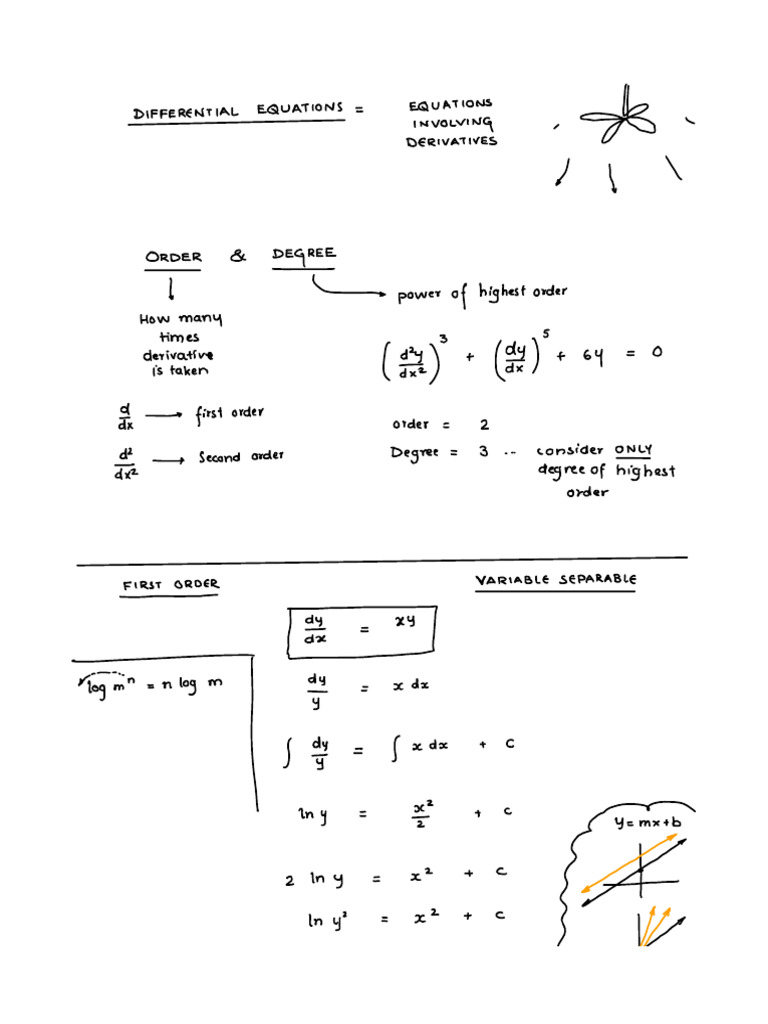 DIFFERENTIAL EQUATIONS = EQUATIONS
INVOLVING
DERIVATIVES
ORDER & DEGREE
How many
times
derivative
is taken
d/dx → first order
d²/dx² → Second order
power of highest order
(d²y/dx²)³ + (dy/dx)⁵ + 6y = 0
order = 2
Degree = 3 .. consider ONLY
degree of highest
order
FIRST ORDER
VARIABLE SEPARABLE
log mⁿ = n log m
dy/dx = xy
dy/y = x dx
∫ dy/y = ∫ x dx + C
ln y = x²/2 + C
2 ln y = x² + C
ln y² = x² + C
y = mx + b